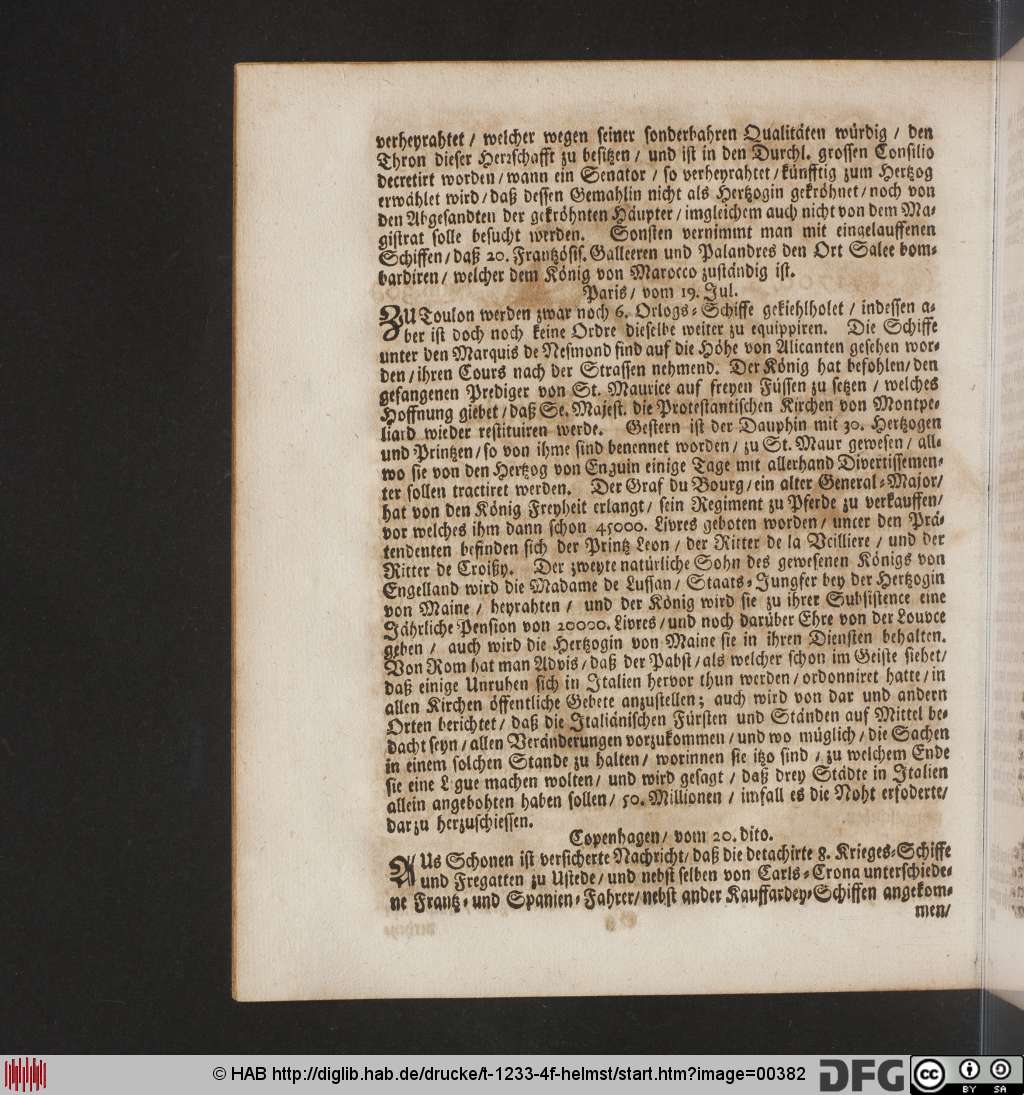 verheyrahtet / welcher wegen seiner sonderbahren Qualitäten würdig / den
Thron dieser Herrschafft zu besitzen / und ist in den Durchl. grossen Consilio
decretirt worden / wann ein Senator / so verheyrahtet / künfftig zum Hertzog
erwählet wird / daß dessen Gemahlin nicht als Hertzogin gekröhnet / noch von
den Abgesandten der gekröhnten Häupter / imgleichem auch nicht von dem Ma-
gistrat solle besucht werden. Sonsten vernimmt man mit eingelauffenen
Schiffen / daß 20. Frantzösis. Galleeren und Palandres den Ort Salee bom-
bardiren / welcher dem König von Marocco zuständig ist.
Paris / vom 19. Jul.
ZU Toulon werden zwar noch 6. Orlogs-Schiffe gekiehlholet / indessen a-
ber ist doch noch keine Ordre dieselbe weiter zu equippiren. Die Schiffe
unter den Marquis de Nesmond sind auf die Höhe von Alicanten gesehen wor-
den / ihren Cours nach der Strassen nehmend. Der König hat befohlen / den
gefangenen Prediger von St. Maurice auf freyen Füssen zu setzen / welches
Hoffnung giebet / daß Se. Majest. die Protestantischen Kirchen von Montpe-
liard wieder restituiren werde. Gestern ist der Dauphin mit 30. Hertzogen
und Printzen / so von ihme sind benennet worden / zu St. Maur gewesen / all-
wo sie von den Hertzog von Enguin einige Tage mit allerhand Divertissemen-
ter sollen tractiret werden. Der Graf du Bourg / ein alter General-Major /
hat von den König Freyheit erlangt / sein Regiment zu Pferde zu verkauffen /
vor welches ihm dann schon 45000. Livres geboten worden / unter den Prä-
tendenten befinden sich der Printz Leon / der Ritter de la Veilliere / und der
Ritter de Croißy. Der zweyte natürliche Sohn des gewesenen Königs von
Engelland wird die Madame de Lussan / Staats-Jungfer bey der Hertzogin
von Maine / heyrahten / und der König wird sie zu ihrer Subsistence eine
Jährliche Pension von 20000. Livres / und noch darüber Ehre von der Louvce
geben / auch wird die Hertzogin von Maine sie in ihren Diensten behalten.
Von Rom hat man Advis / daß der Pabst / als welcher schon im Geiste siehet /
daß einige Unruhen sich in Italien hervor thun werden / ordonniret hatte / in
allen Kirchen öffentliche Gebete anzustellen; auch wird von dar und andern
Orten berichtet / daß die Italiänischen Fürsten und Ständen auf Mittel be-
dacht seyn / allen Veränderungen vorzukommen / und wo müglich / die Sachen
in einem solchen Stande zu halten / worinnen sie itzo sind / zu welchem Ende
sie eine Ligue machen wolten / und wird gesagt / daß drey Städte in Italien
allein angebohten haben sollen / 50. Millionen / imfall es die Noht erfoderte /
darzu herzuschiessen.
Copenhagen / vom 20. dito.
AUs Schonen ist versicherte Nachricht / daß die detachirte 8. Krieges-Schiffe
und Fregatten zu Ustede / und nebst selben von Carls-Crona unterschiede-
ne Frantz- und Spanien-Fahrer / nebst ander Kauffardey-Schiffen angekom-
men /
© HAB http://diglib.hab.de/drucke/t-1233-4f-helmst/start.htm?image=00382
DFG
cc BY SA